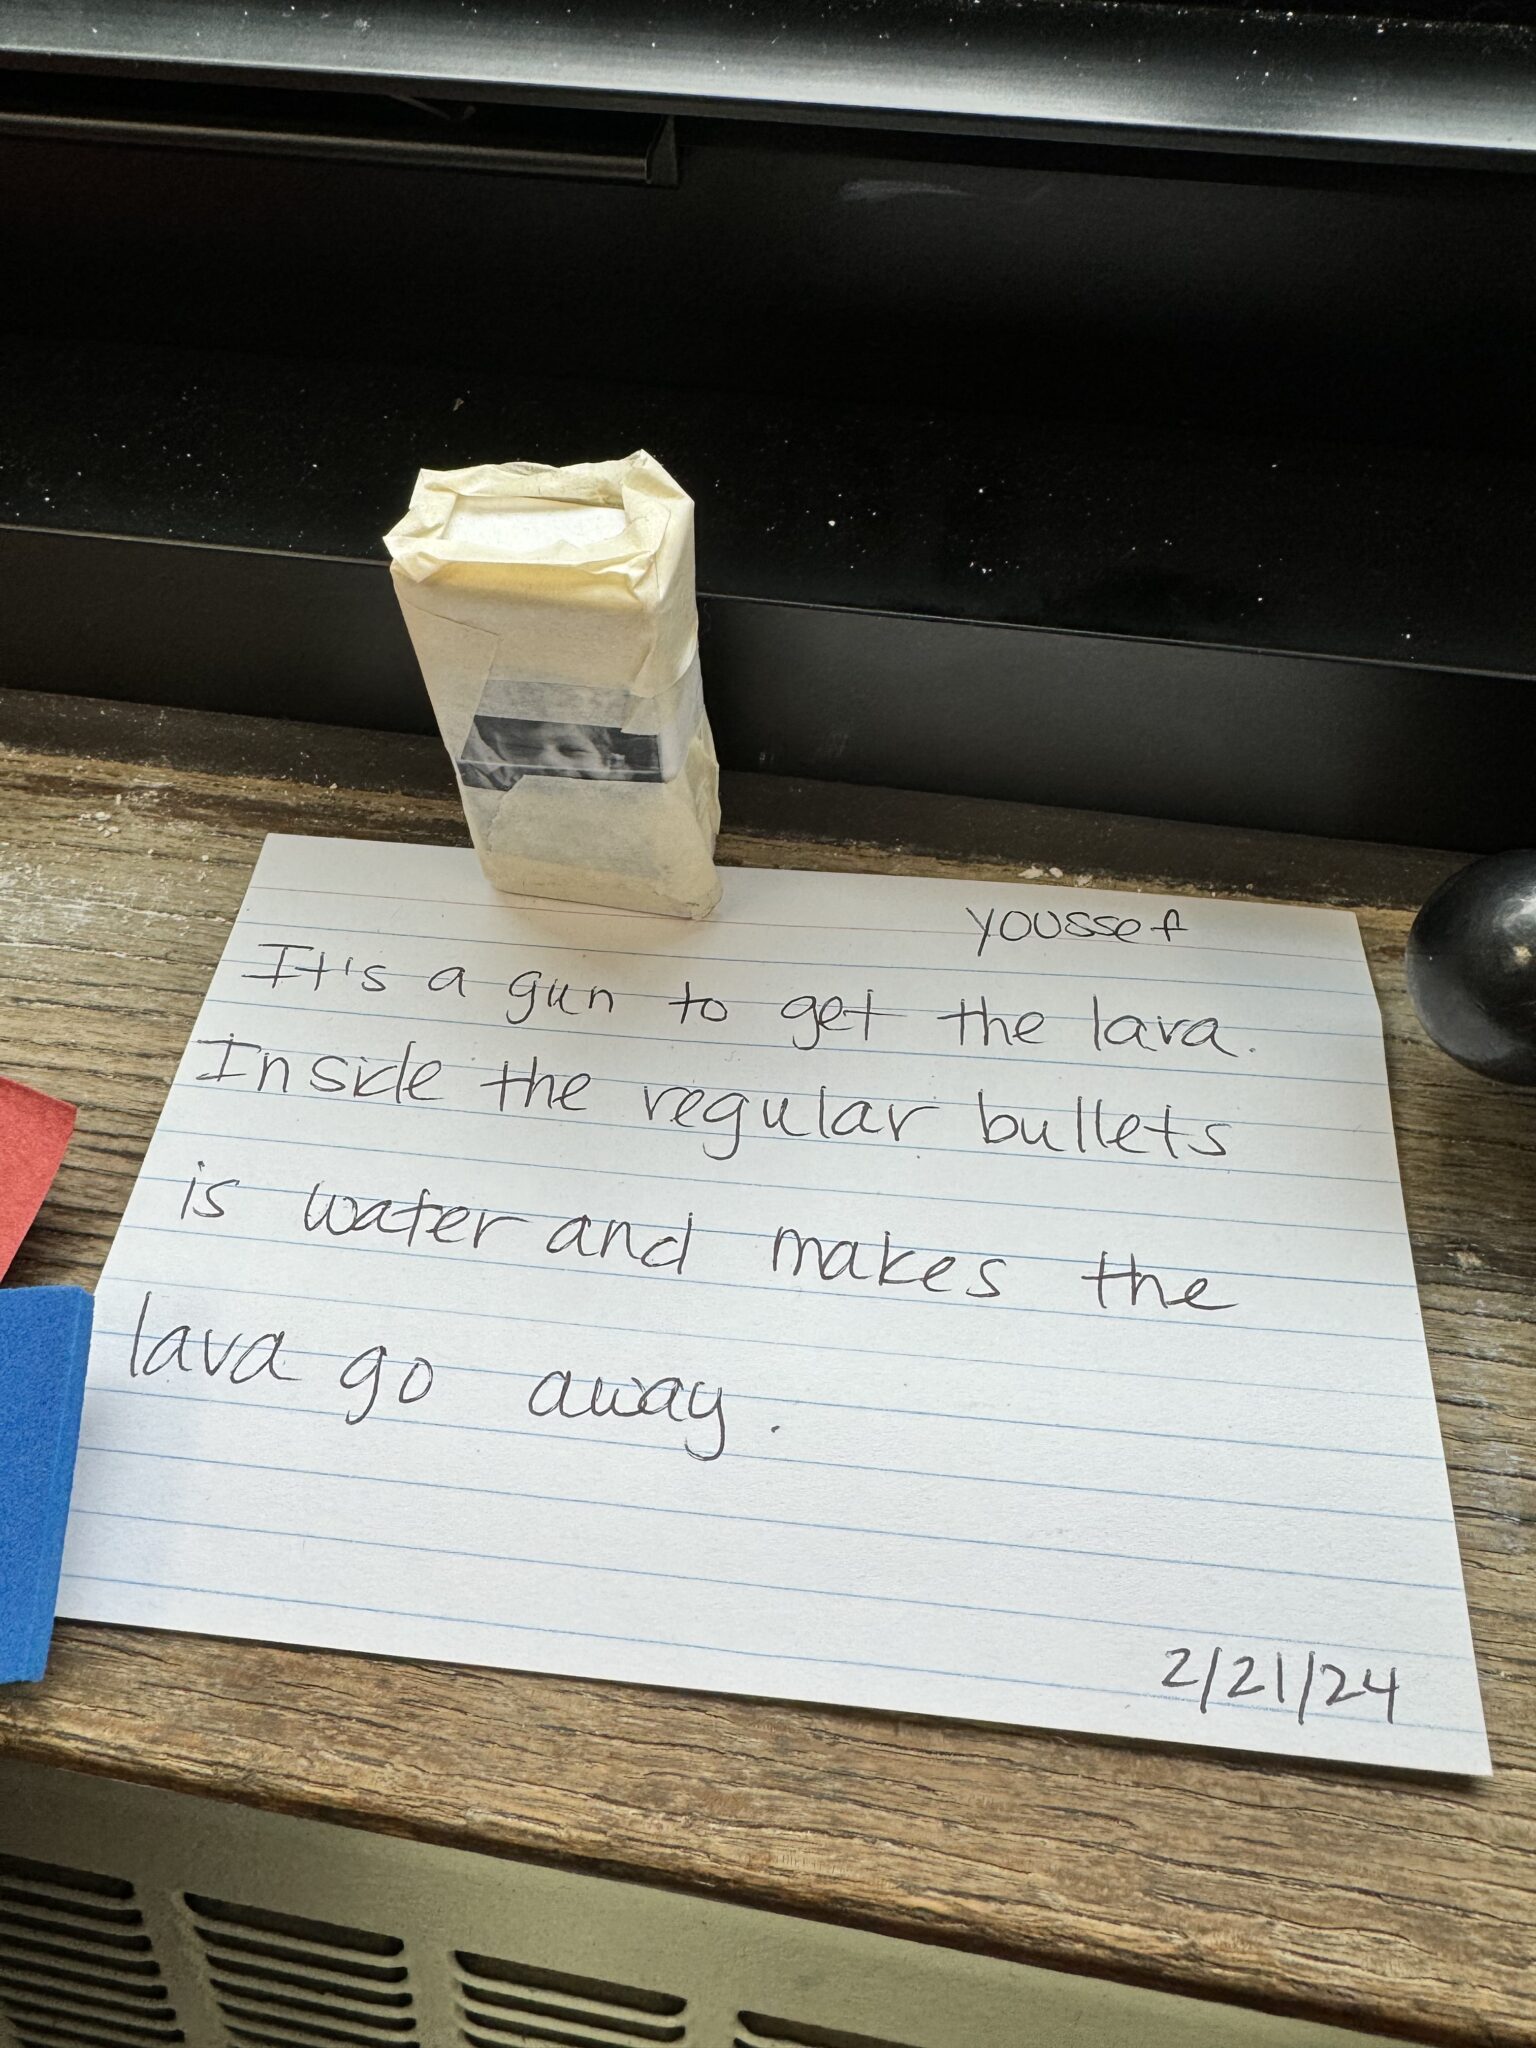 Youssef
It's a gun to get the lava.
Inside the regular bullets
is water and makes the
lava go away.
2/21/24